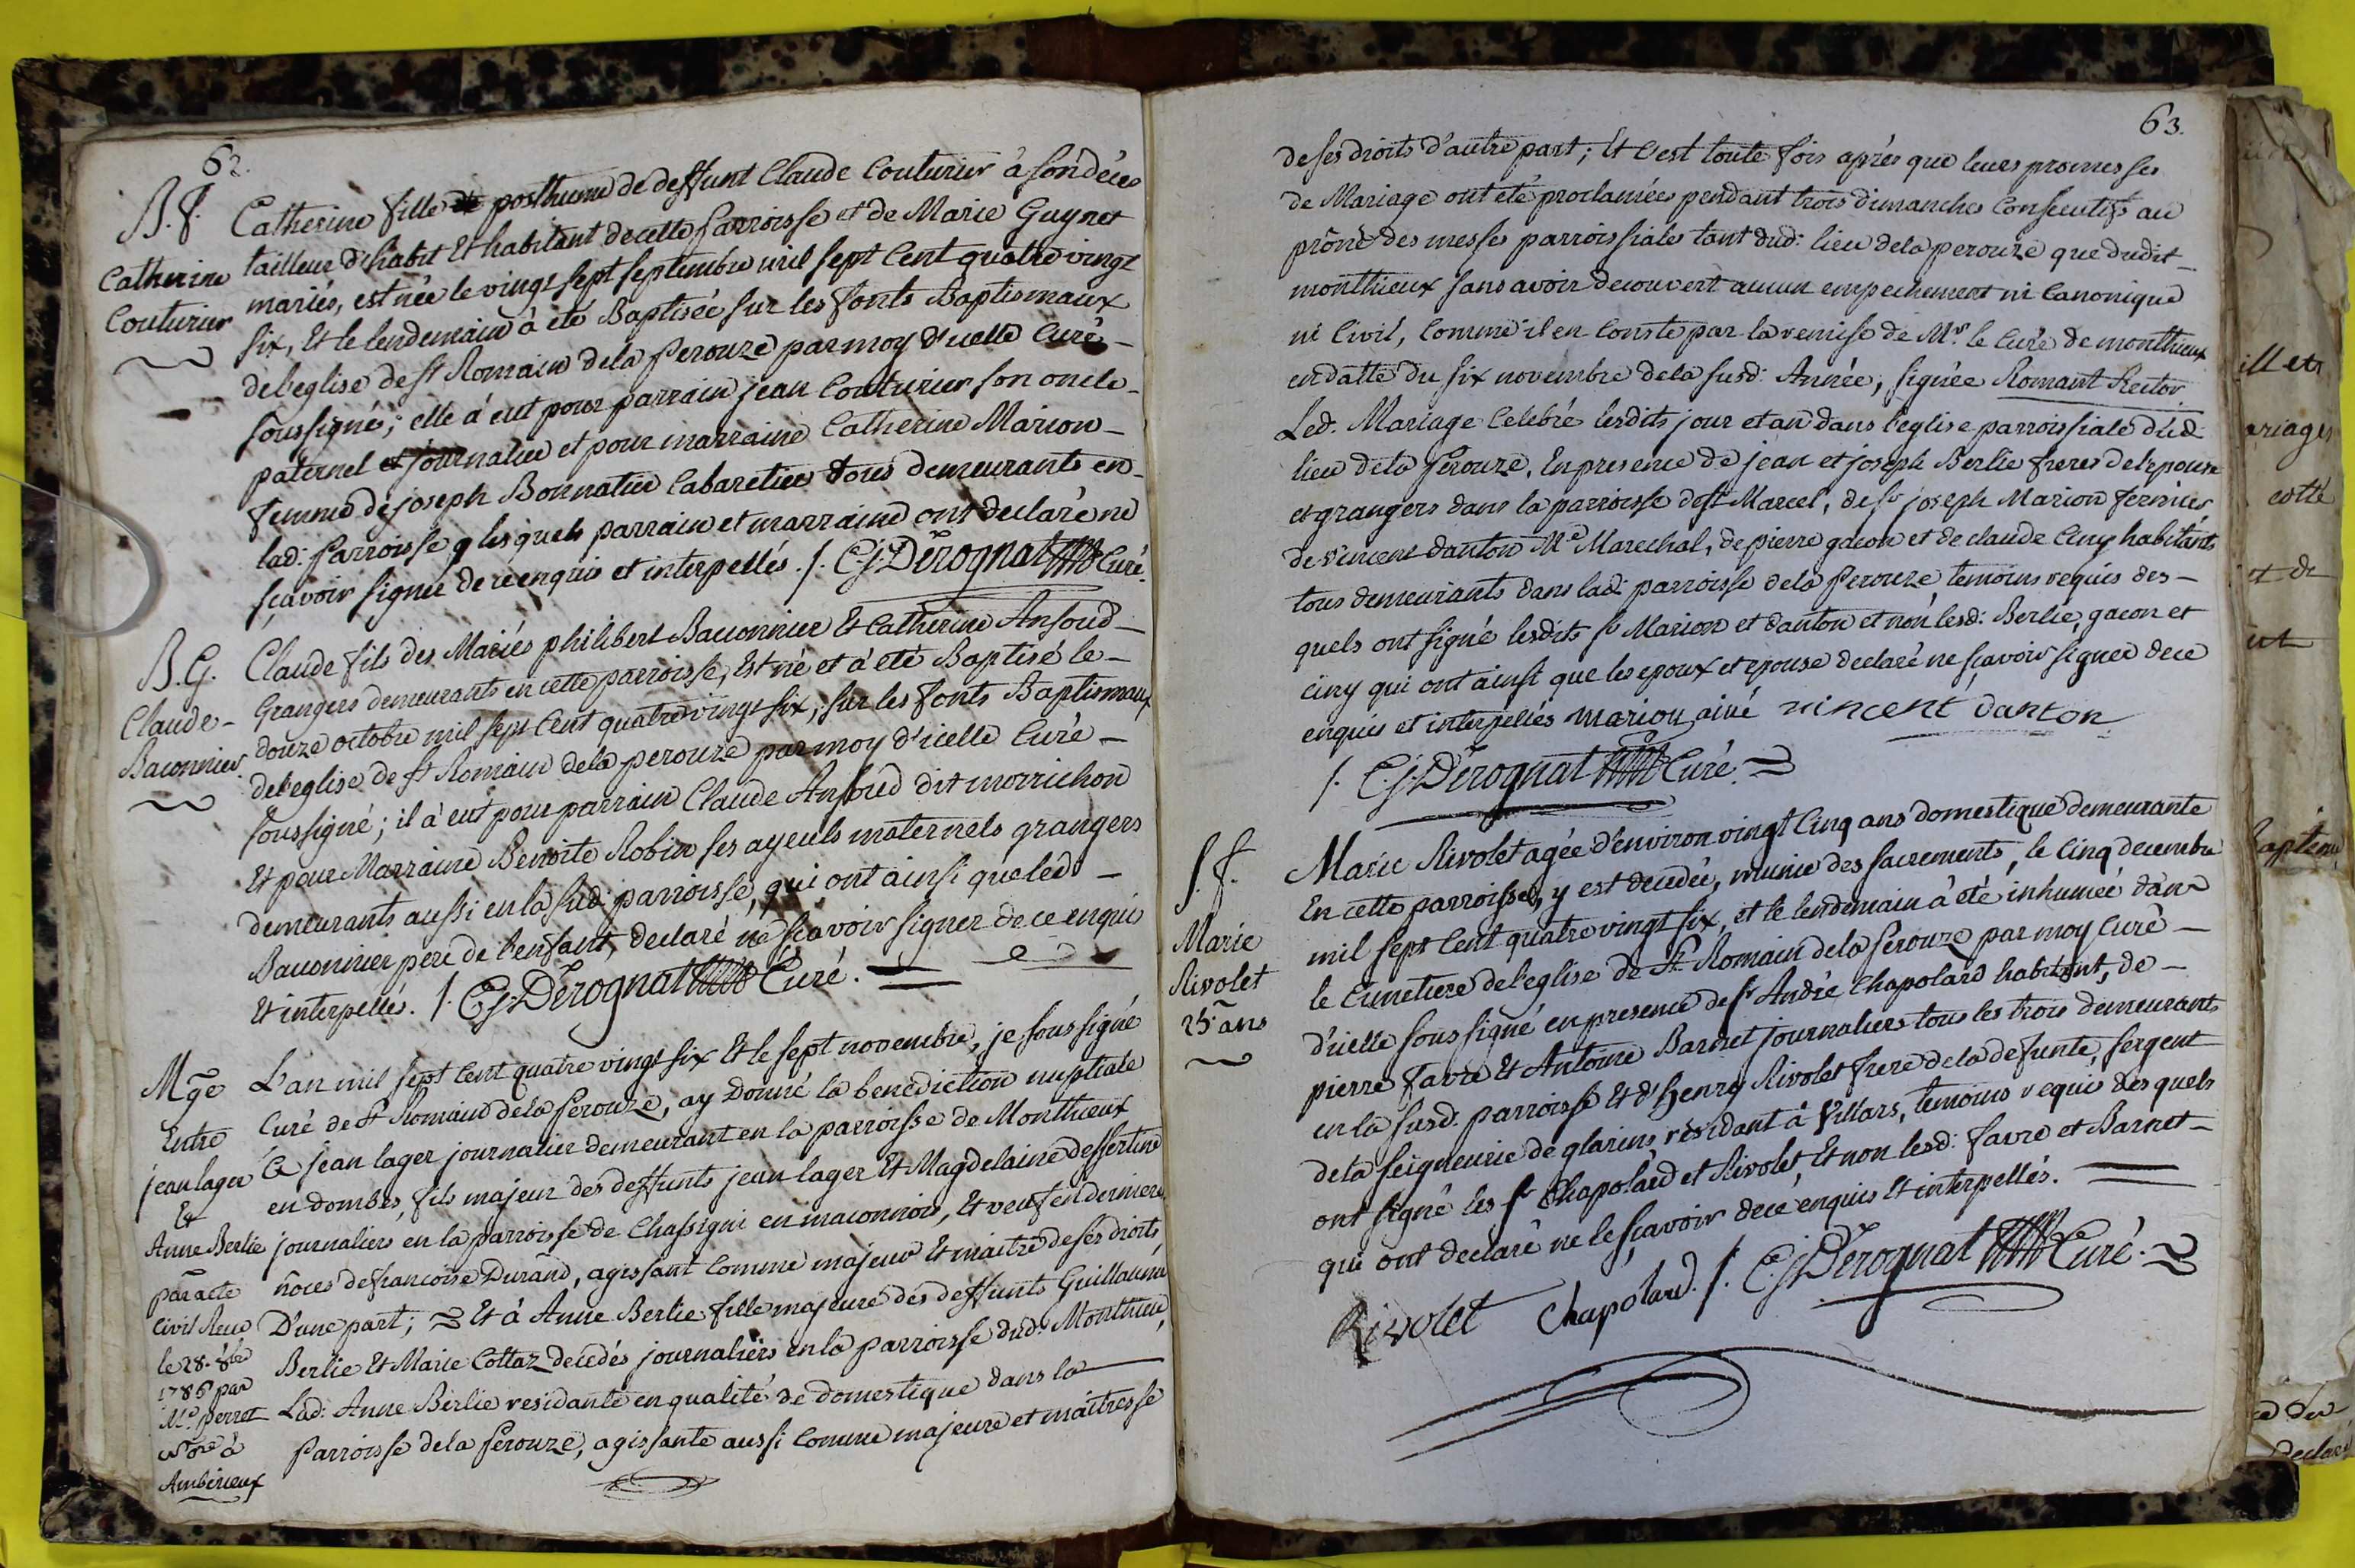 62.
B. f.
Catherine
Couturier
Catherine fille posthume de deffunt Claude Couturier à son décès
tailleur d'habit Et habitant de cette Parroisse et de Marie Guynet
mariés, est née le vingt sept septembre mil sept Cent quatre vingt
six, Et le lendemain à eté Baptisée sur les fonts Baptismaux
de l'eglise de St Romain de la Perouze par moy d'icelle Curé
soussigné; elle à eut pour parrain jean Couturier son oncle
paternel et journalier et pour marraine Catherine Marion
femme de joseph Bonnatier Cabaretier tous demeurants en
lad: Parroisse lesquels parrain et marraine ont declaré ne
sçavoir signer de ce enquis et interpellés. /. C. j. Dérognat Curé.
B. G.
Claude
Baconnier
Claude fils des Mariés philibert Baconnier Et Catherine Ansoud
Grangers demeurants en cette parroisse, Est né et à eté Baptisé le
douze octobre mil sept Cent quatre vingt six, sur les fonts Baptismaux
de l'eglise de St Romain de la perouze par moy d'icelle Curé
soussigné; il à eut pour parrain Claude Ansoud dit morrichon
Et pour Marraine Benoite Robin ses ayeuls maternels grangers
demeurants aussi en la sud: parroisse, qui ont ainsi que led:
Baconnier pere de l'enfant, declaré ne sçavoir signer de ce enquis
Et interpellés. /. C. j. Dérognat Curé.
Mge
Entre
jean lager
Et
Anne Berlie
par acte
Civil Reçu
le 28. 8bre
1786 par
Me. perret
Nore à
Amberieux
L'an mil sept Cent quatre vingt six Et le sept novembre, je soussigné
Curé de St Romain de la Perouze, ay donné la benediction nuptiale
à jean lager journalier demeurant en la parroisse de Monthieux
en dombes, fils majeur des deffunts jean lager Et Magdelaine dessertine
journaliers en la parroisse de Chassigni en maconnois, Et veuf en dernieres
noces de francoise Durand, agissant Comme majeur Et maitre de ses droits
D'une part; Et à Anne Berlie fille majeure des deffunts Guillaume
Berlie Et Marie Collaz decedés journaliers en la parroisse dud: Monthieux,
Lad: Anne Berlie residante en qualité de domestique dans la
Parroisse de la Perouze, agissante aussi Comme majeure et maitresse
63.
de ses droits d'autre part; Et C'est toute fois après que leurs promesses
de Mariage ont eté proclamées pendant trois dimanches Consecutifs au
prône des messes parroissiales tant dud: lieu de la perouze que dudit
monthieux sans avoir decouvert aucun empechement ni Canonique
ni Civil, Comme il en Conste par la remise de Mr. le Curé de monthieux
en datte du six novembre de la susd: Année, signée Romant Rector
Led. Mariage Celebré lesdits jour et an dans l'eglise parroissiale dud:
lieu de la Perouze, En presence de jean et joseph Berlie freres de l'epouse
et grangers dans la parroisse de St Marcel, de sr joseph Marion fermier
de vincent danton Me Marechal, de pierre gacon et de claude Ciny habitants
tous demeurants dans lad: parroisse de la Perouze, temoins requis des
quels ont signé lesdits sr Marion et danton et non lesd: Berlie, gacon et
ciny qui ont ainsi que les epoux et epouse declaré ne sçavoir signer de ce
enquis et interpellés marion ainé vincent danton
/. C. j. Dérognat Curé.
S. f.
Marie
Rivolet
25. ans
Marie Rivolet agée d'environ vingt Cinq ans domestique demeurante
En cette parroisse, y est decedée, munie des sacrements, le Cinq decembre
mil sept Cent quatre vingt six, et le lendemain à eté inhumée dans
le Cimetiere de l'eglise de St Romain de la Perouze par moy Curé
d'icelle soussigné en presence de sr André Chapolard habitant, de
pierre favre Et Antoine Barnet journaliers tous les trois demeurants
en la susd. parroisse Et d'henry Rivolet frere de la defunte, sergent
de la seigneurie de glarins residant à Villars, temoins requis des quels
ont signé les sr Chapolard et Rivolet, Et non lesd: favre et Barnet
qui ont declaré ne le sçavoir de ce enquis Et interpellés.
Rivolet Chapolard. /. C. j. Dérognat Curé.